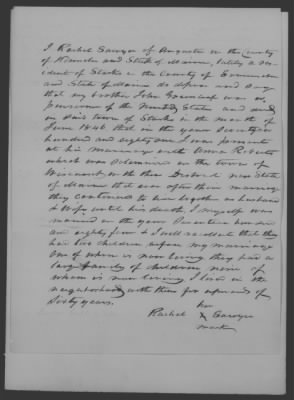 I Rachel Sawyer of Augusta in the County
of Kennebec and State of Maine, lately a resi-
dent of Starks in the County of Somerset
and State of Maine do depose and say
that my brother John Greenleaf was a
pensioner of the United States and died
in said town of Starks in the month of
June 1846 that in the year Seventeen
hundred and eighty one I was present
at his marriage with Anna Roberts
which was solemnized in the town of
Wiscasset in the then District now State
of Maine that ever after their marriage
they continued to live together as husband
& wife until his death, I myself was
married in the year Seventeen hundred
and eighty four & I well recollect that they
had two children before my marriage
one of whom is now living they had a
large family of children none of
whom is now living I lived in the
neighborhood with them for upwards of
Sixty years.
her
Rachel X Sawyer
mark